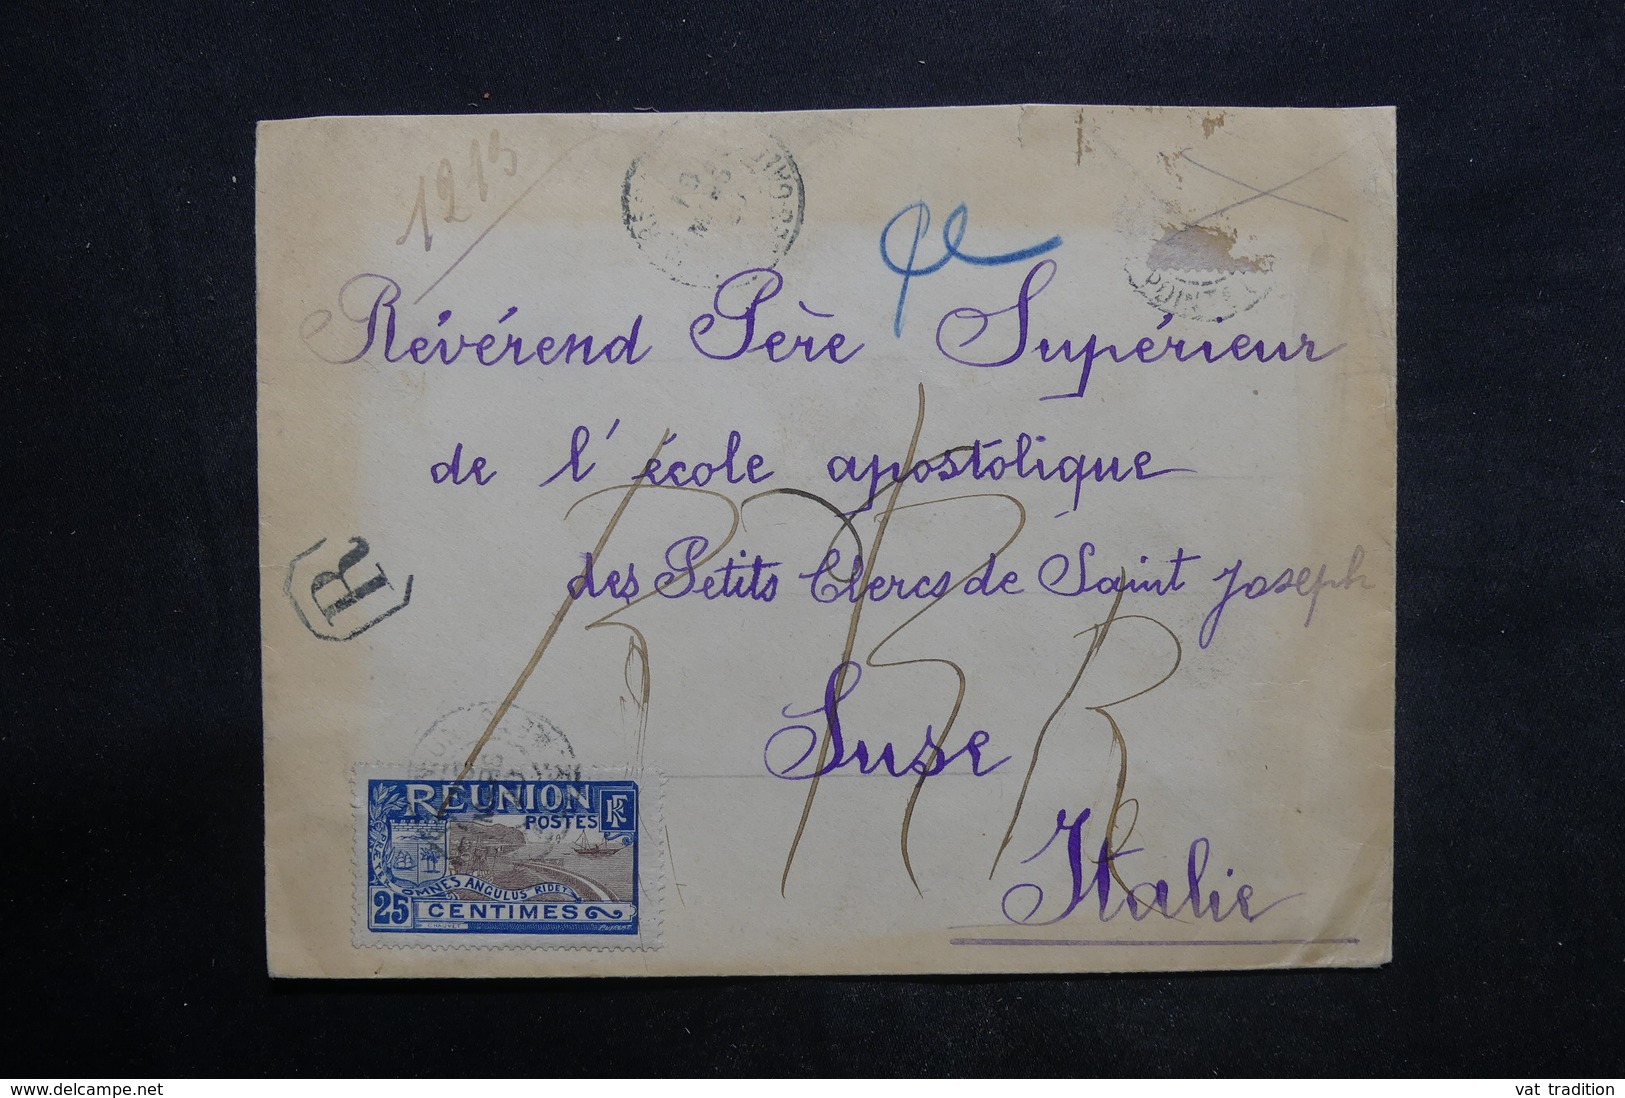 1213
Révérend Père Supérieur
de l'école apostolique
des Petits Clercs de Saint Joseph
Suse
Italie
R
R R R
POINTE
RÉUNION
POSTES
RF
OMNES ANGULUS RIDET
25 CENTIMES
www.delcampe.net
vat_tradition